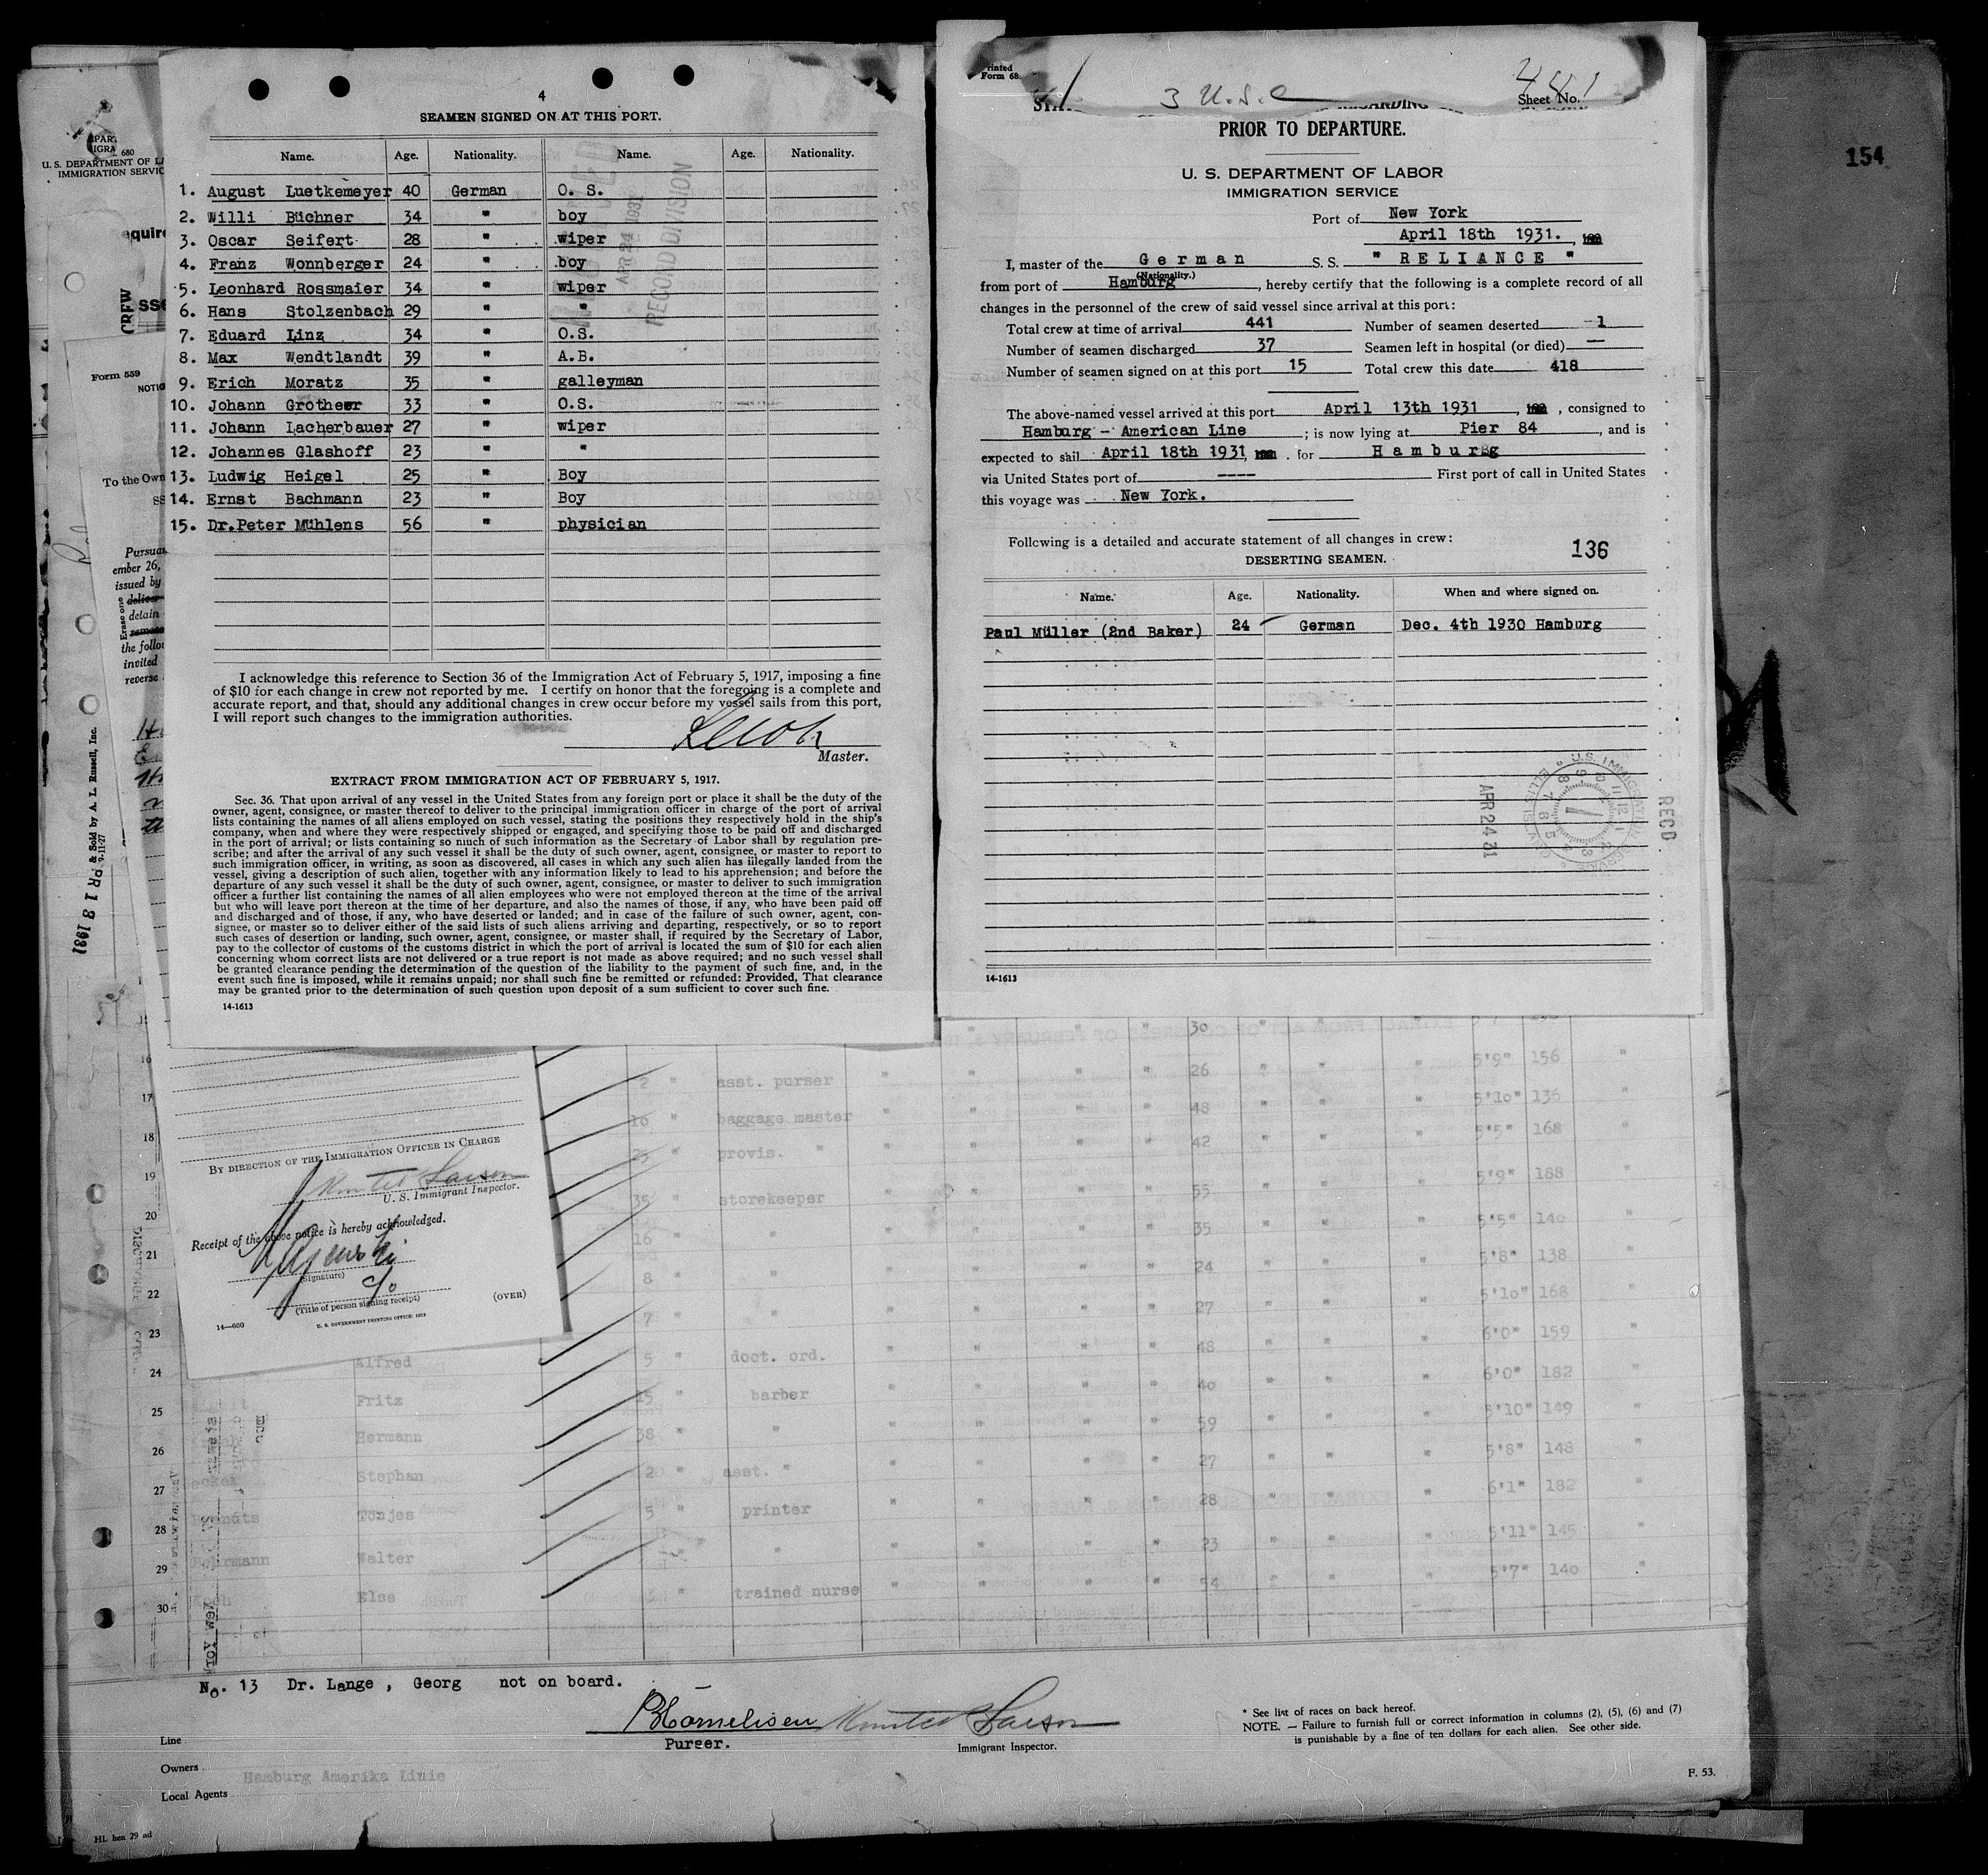 4
SEAMEN SIGNED ON AT THIS PORT.
Name. Age. Nationality. Name. Age. Nationality.
1. August Luetkemeyer 40 German O. S.
2. Willi Büchner 34 " boy
3. Oscar Seifert 28 " wiper
4. Franz Wonnberger 24 " boy
5. Leonhard Rossmaier 34 " wiper
6. Hans Stolzenbach 29 " "
7. Eduard Linz 34 " O.S.
8. Max Wendtlandt 39 " A.B.
9. Erich Moratz 35 " galleyman
10. Johann Grotheer 33 " O.S.
11. Johann Lacherbauer 27 " wiper
12. Johannes Glashoff 23 " "
13. Ludwig Heigel 25 " Boy
14. Ernst Bachmann 23 " Boy
15. Dr.Peter Mühlens 56 " physician
APR 24 1931
RECORD DIVISION
I acknowledge this reference to Section 36 of the Immigration Act of February 5, 1917, imposing a fine
of $10 for each change in crew not reported by me. I certify on honor that the foregoing is a complete and
accurate report, and that, should any additional changes in crew occur before my vessel sails from this port,
I will report such changes to the immigration authorities.
Master.
EXTRACT FROM IMMIGRATION ACT OF FEBRUARY 5, 1917.
Sec. 36. That upon arrival of any vessel in the United States from any foreign port or place it shall be the duty of the
owner, agent, consignee, or master thereof to deliver to the principal immigration officer in charge of the port of arrival
lists containing the names of all aliens employed on such vessel, stating the positions they respectively hold in the ship's
company, when and where they were respectively shipped or engaged, and specifying those to be paid off and discharged
in the port of arrival; or lists containing so much of such information as the Secretary of Labor shall by regulation pre-
scribe; and after the arrival of any such vessel it shall be the duty of such owner, agent, consignee, or master to report to
such immigration officer, in writing, as soon as discovered, all cases in which any such alien has illegally landed from the
vessel, giving a description of such alien, together with any information likely to lead to his apprehension; and before the
departure of any such vessel it shall be the duty of such owner, agent, consignee, or master to deliver to such immigration
officer a further list containing the names of all alien employees who were not employed thereon at the time of the arrival
but who will leave port thereon at the time of her departure, and also the names of those, if any, who have been paid off
and discharged and of those, if any, who have deserted or landed; and in case of the failure of such owner, agent, con-
signee, or master so to deliver either of the said lists of such aliens arriving and departing, respectively, or so to report
such cases of desertion or landing, such owner, agent, consignee, or master shall, if required by the Secretary of Labor,
pay to the collector of customs of the customs district in which the port of arrival is located the sum of $10 for each alien
concerning whom correct lists are not delivered or a true report is not made as above required; and no such vessel shall
be granted clearance pending the determination of the question of the liability to the payment of such fine, and, in the
event such fine is imposed, while it remains unpaid; nor shall such fine be remitted or refunded: Provided, That clearance
may be granted prior to the determination of such question upon deposit of a sum sufficient to cover such fine.
14-1613
Form 68
3 U.S.C
441
Sheet No.
REGARDING
PRIOR TO DEPARTURE.
U. S. DEPARTMENT OF LABOR
IMMIGRATION SERVICE
Port of New York
April 18th 1931.
I, master of the German S. S. " RELIANCE "
(Nationality.)
from port of Hamburg, hereby certify that the following is a complete record of all
changes in the personnel of the crew of said vessel since arrival at this port:
Total crew at time of arrival 441 Number of seamen deserted 1
Number of seamen discharged 37 Seamen left in hospital (or died) —
Number of seamen signed on at this port 15 Total crew this date 418
The above-named vessel arrived at this port April 13th 1931, consigned to
Hamburg - American Line; is now lying at Pier 84, and is
expected to sail April 18th 1931, for Hamburg
via United States port of ---- First port of call in United States
this voyage was New York.
Following is a detailed and accurate statement of all changes in crew:
136
DESERTING SEAMEN.
Name. Age. Nationality. When and where signed on.
Paul Müller (2nd Baker) 24 German Dec. 4th 1930 Hamburg
APR 24 31
REC'D.
14-1613
154
680
U. S. DEPARTMENT OF
IMMIGRATION SERVIC
CREW
Form 559
To the Own
Pursuan
ember 26,
issued by
Erase one
detain
the follo
invited
reverse
& Sold by A. L. Russell, Inc.
PR 18 1931
BY DIRECTION OF THE IMMIGRATION OFFICER IN CHARGE
U. S. Immigrant Inspector.
Receipt of the above notice is hereby acknowledged.
(Signature)
(Title of person signing receipt)
(OVER)
14—600
U. S. GOVERNMENT PRINTING OFFICE
30
16 26 5'9" 156
17 2 " asst. purser 48 5'10" 136
18 10 " baggage master 42 5'5" 168
19 25 " provis. " 55 5'9" 188
20 35 " storekeeper 35 5'5" 140
21 16 " " 24 5'8" 138
22 8 " " 27 5'10" 168
23 7 " " 48 6'0" 159
24 Alfred 5 " doct. ord. 40 6'0" 182
25 Fritz 15 " barber 59 5'10" 149
26 Hermann 38 " " 27 5'8" 148
27 Stephan 2 " asst. " 28 6'1" 182
28 Tönjes 5 " printer 23 5'11" 145
29 Walter " " 54 5'7" 140
30 Else 5 " trained nurse
New York
No. 13 Dr. Lange , Georg not on board.
Purser.
Immigrant Inspector.
* See list of races on back hereof.
NOTE. — Failure to furnish full or correct information in columns (2), (5), (6) and (7)
is punishable by a fine of ten dollars for each alien. See other side.
Line
Owners
Hamburg Amerika Linie
Local Agents
F. 53.
HL hen 29 ad